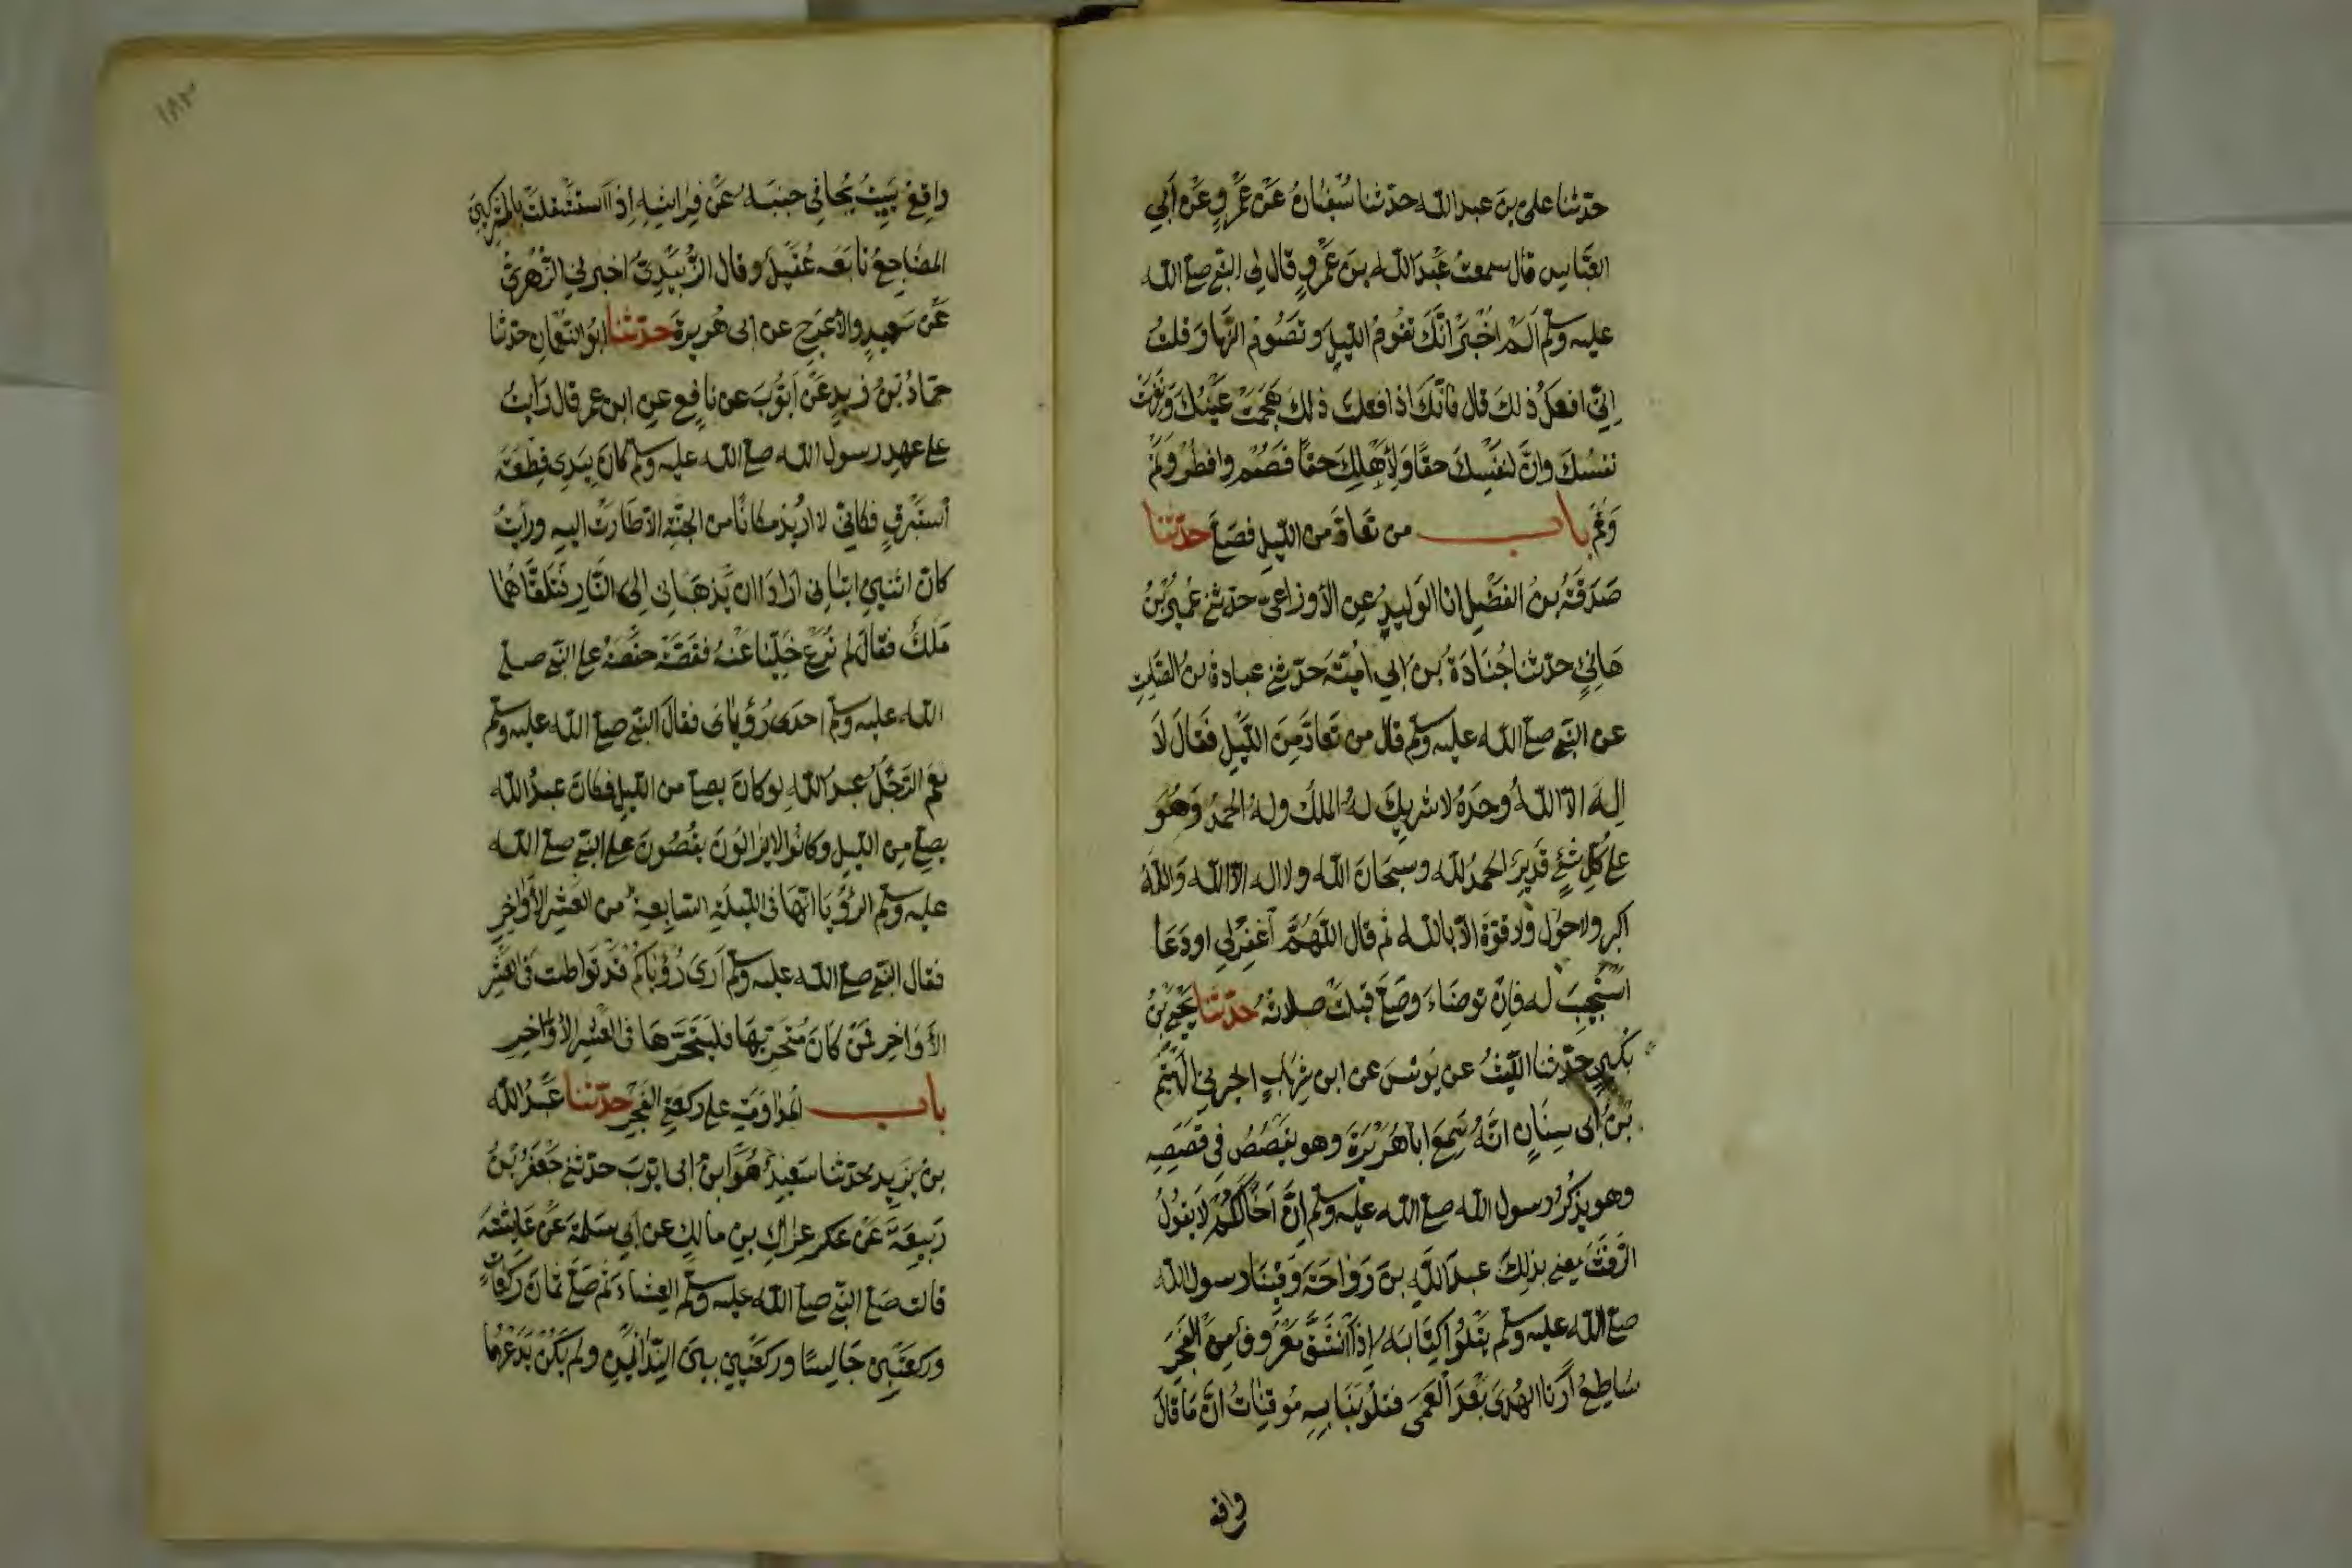 حدثنا على بن عبد الله حدثنا سُفيانُ عَنْ عَمْروٍ عَنْ أَبِي
العَبَّاسِ قال سمعتُ عَبْدَ الله بنَ عَمْروٍ قال لي النبي صلى الله
عليه وسلم أَلَمْ اُخْبَرْ انَّكَ تقُومُ الليلَ وتَصُومُ النهارَ قلتُ
اِنّي افعَلُ ذلكَ قال فانَّكَ اذا فعلتَ ذلك هَجَمَتْ عَينُكَ وَنَفِهَتْ
نفسُكَ وانَّ لنَفْسِكَ حقًا وَلِأَهْلِكَ حقًا فَصُمْ وافطر وقُمْ
وَنَمْ باب من تَعَارَّ من الليلِ فصَلَّى حدّثنا
صَدَقَةُ بنُ الفَضْلِ انا الوَليدُ عن الأَوزاعىّ حدثنى عُمَيرُ بْنُ
هَانِئٍ حدثنا جُنَادَةُ بنُ أبي اُميّةَ حدّثنى عبادةُ بنُ الصّامِتِ
عن النبى صلى الله عليه وسلم قال من تَعَارَّ مِنَ اللَّيلِ فَقَالَ لَا
اِلٰهَ الاّ اللهُ وحدَهُ لا شريكَ لهُ الملك وله الحمدُ وَهُوَ
على كلِّ شئٍ قَديرٌ الحمدُ لله وسبحانَ الله ولا اله الا الله وَاللهُ
اكبر ولا حَولَ ولا قوّةَ الاّ بالله ثم قال اللّهُمَّ اَغفِرْلِى او دَعَا
استُجِيبَ له فإنْ توضاءَ وصَلَّى قبلتْ صلاتُهُ حدّثنا يحيى بْنُ
بُكَيرٍ حدثنا الليثُ عن يُونسَ عن ابن شِهابٍ اخبرنى الهَيْثَمُ
بْنُ ابى سِنَانٍ انَّهُ سَمِعَ اباهُرَيْرَةَ وهو يقصُصُ فِي قَصَصِهِ
وهو يذكُرُ رسول الله صلى الله عليه وسلم اِنَّ اَخًا لَكُمْ لَا يَقُولُ
الرَّفَثَ يعنى بذلِكَ عبدَ اللهِ بنَ رَوَاحَةَ وَفِيْنَا رسول الله
صلى الله عليه وسلم يَتْلُوا كِتَابَهُ اِذَا انْشَقَّ مَعْرُوفٌ مِنَ الفَجرِ
سَاطِعُ أَرَنا الهُدَى بَعْدَ العَمَى فقلُوبُنَا بِهِ مُوقِنَاتٌ انَّ مَا قَالَ
واقع
١٨٣
وَاقِعُ يَبِيتُ يُجَافِى جنبَهُ عَنْ فِرَاشِهِ اِذَا استَثقَلتْ بالمشركينَ
المضَاجِعُ تابَعَهُ عُقَيْلٌ وقال الزُّبَيْدِىُّ اخبرنى الزُّهرىُّ
عَنْ سَعِيدٍ والأَعْرَجِ عن ابى هُريرةَ حدّثنا ابُو النعْمانِ حدّثنا
حمّادُ بْنُ زيدٍ عَنْ اَيُّوبَ عن نافِعٍ عن ابن عمر قال رَايتُ
على عهدِ رسول الله صلى الله عليه وسلم كأنَّ بيَدِى قِطْعَةَ
اِسْتَبْرَقٍ فكانّى لا اُرِيدُ مكانًا من الجنّةِ الاّ طَارَتْ اليهِ ورأيتُ
كانّ اثنينِ اتيانِى ارادا ان يَذهَبانِى اِلى النّارِ فَتَلَقَّاهُمَا
مَلَكٌ فقالَ لم تُرَعْ خَلِّيَا عَنْهُ فقَصَّتْ حفْصَةُ على النبّى صلى
الله عليه وسلم احدَى رُؤْيَاىَ فقالَ النّبى صلى الله عليه وسلم
نِعْمَ الرَّجُلُ عبدُ اللهِ لو كانَ يصلى من الليلِ فكانَ عبدُ الله
يصلّى من الليلِ وكانُوا لا يزالُونَ يقُصُّونَ على النّبى صلى الله
عليه وسلم الرؤْيَا انَّهَا فى الليلةِ السّابِعةِ من العَشْرِ الأَوَاخِرِ
فقال النّبى صلى الله عليه وسلم اَرىَ رُؤْيَاكُمْ قدْ تواطَت فى العَشْرِ
الأَوَاخِرِ فَمَنْ كَانَ مُتَحرِيهَا فليتَحَرَّهَا فى العَشْرِ الأَوَاخِرِ
باب المُداوَمَةِ على ركعتى الفَجْرِ حدّثنا عَبْدُ الله
بنُ يَزِيدَ حدّثنا سَعِيدٌ هُوَ ابنُ ابى ايوبَ حدثنى جَعْفَرُ بْنُ
رَبِيعَةَ عَنْ عِرَاكِ بنِ مالكٍ عن أَبي سَلمةَ عَنْ عَايشَةَ
قالت صَلّى النّبى صلى الله عليه وسلم العِشَاءَ ثُمّ صَلّى ثمانَ رَكَعَاتٍ
وركعَتَينِ جَالِسًا وركعتَينِ بينَ النِّدائَينِ ولم يَكُنْ يَدَعْهُمَا